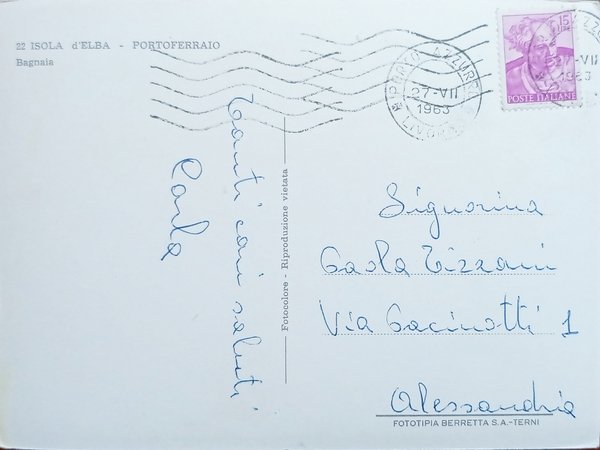 22 ISOLA d'ELBA - PORTOFERRAIO
Bagnaia
PORTO AZZURRO
27-VII
1963
LIVORNO
15
LIRE
POSTE ITALIANE
27-VII
1963
Tanti cari saluti
Carla
Fotocolore - Riproduzione vietata
Signorina
Paola Tizzani
Via Pacinotti 1
Alessandria
FOTOTIPIA BERRETTA S.A.-TERNI